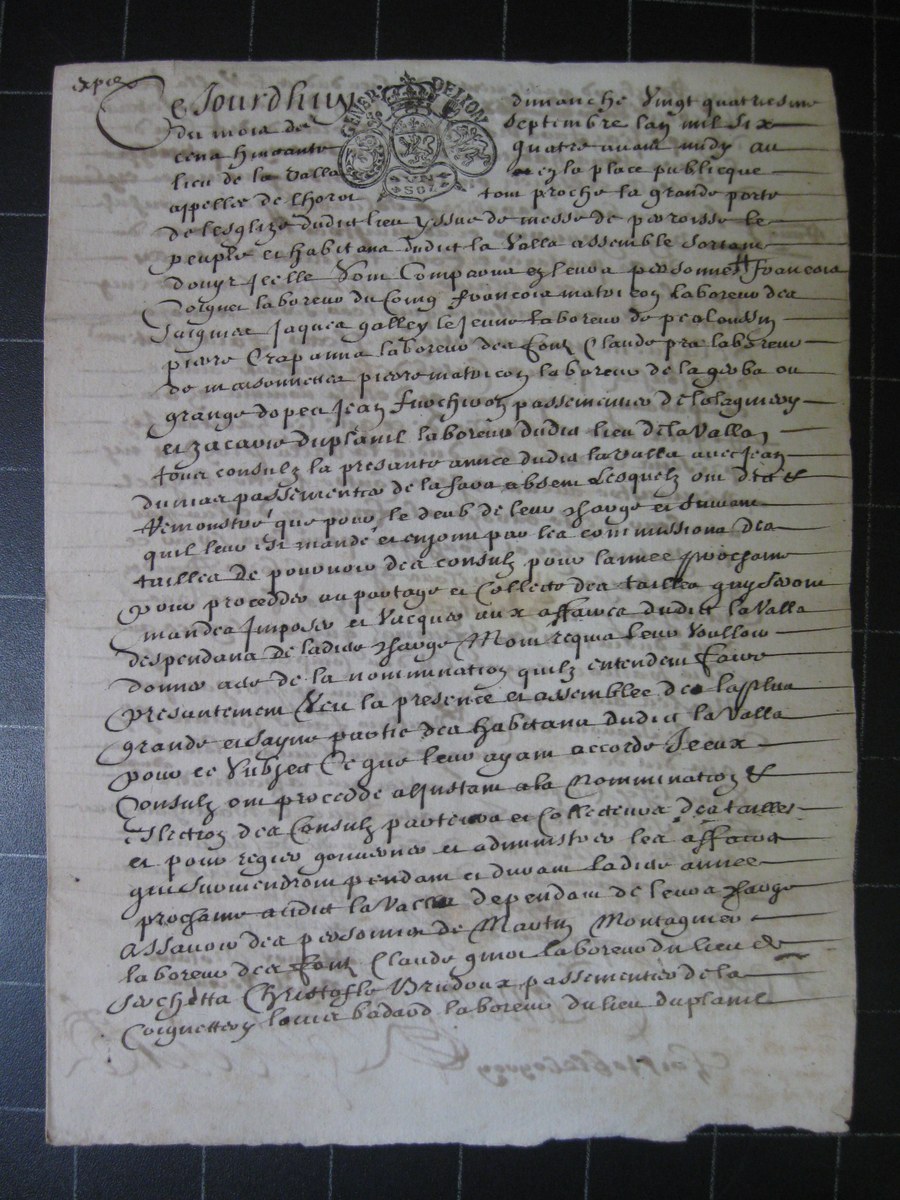 expee
Ce Jourdhuy dimanche Vingt quatriesme
GENER DE LYON
UN SOL
du mois de septembre lan mil six
cens huictante quatre avant midy au
lieu de la Valla en la place publicque
appellee de lhorme tout proche la grande porte
de lesglize dudict lieu yssue de messe de parroisse le
peuple et habitans dudict la Valla assemble sortant
douyr Icelle Sont Comparus en leurs personnes François
laboreur du Coing françois matricon laboreur des
Jacques galley le Jeune laboreur de pealoussin
pierre Crapanne laboreur des font Claude pra laboreur
de maisonnettes pierre matricon laboreur de la gerba ou
grange dopee Jean passementier de
et zacarie duplanil laboreur dudict lieu de la Valla
tous consulz la presante annee dudict la valla avec Jean
dumas passementier de la fara absent Lesquelz ont dict et
Remonstré que pour le deub de leur charge et suivant
quil leur est mandé et enjoint par les commissions des
tailles de pourvoir des consulz pour lannee prochaine
pour proceder au partage et Collecte des tailles quy seront
mandes Imposer et Vacquer aux affaires dudict la Valla
despendans de ladite charge Mont requis leur Voulloir
donner acte de la nommination quilz entendent faire
presantement Veu la presence et assemblee de la plus
grande et sayne partie des habitans dudict la Valla
pour ce subject Ce que leur ayant accordé Iceux
Consulz ont procedde a linstant a la Nommination et
Eslection des Consulz parteurs et Collecteurs des tailles
et pour regir gouverner et administrer les affaires
qui surviendront pendant et durant ladite annee
prochaine audict la Valla dependant de leurs charge
Assavoir des personnes de Martin Montagnier
laboreur des font Claude laboreur du lieu de
Christofle passementier de la
louis badard laboreur du lieu duplanil